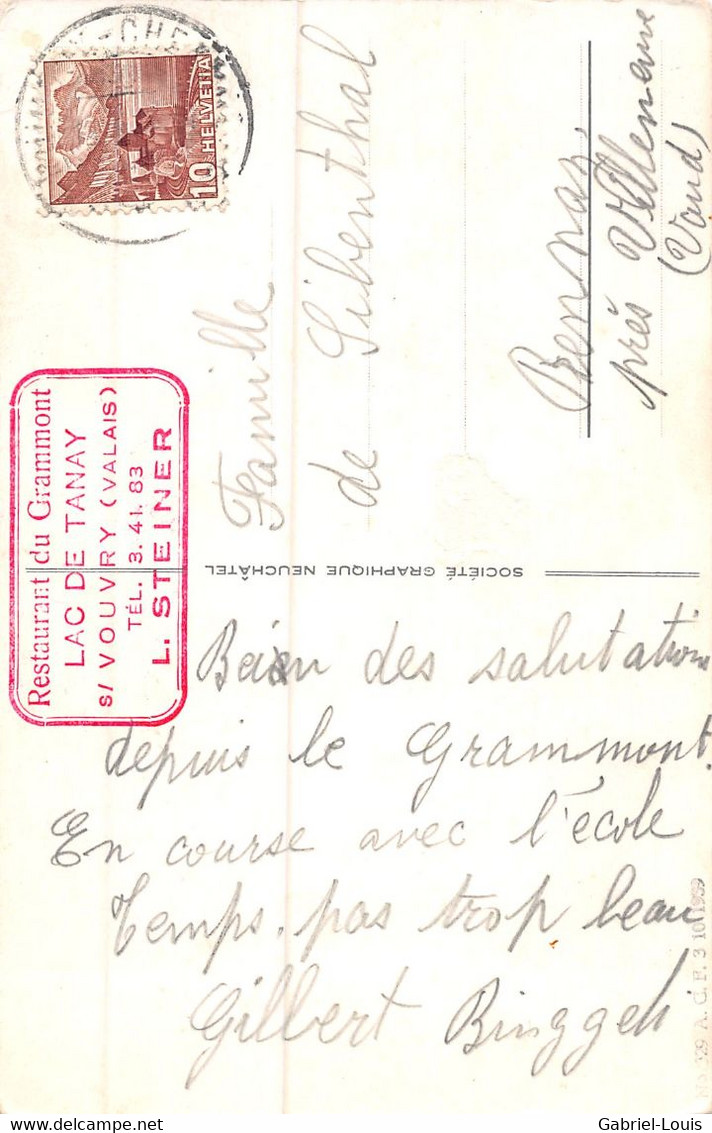 HELVETIA
10
Famille
de Sibenthal
Rennaz,
près Villeneuve
(Vaud)
Restaurant du Grammont
LAC DE TANAY
S/ VOUVRY (VALAIS)
TÉL. 3.41.83
L. STEINER
SOCIÉTÉ GRAPHIQUE NEUCHÂTEL
Bien des salutations
depuis le Grammont.
En course avec l'école
Temps pas trop beau
Gilbert Binggeli
329 A. C. F. 3 10 1939
Gabriel-Louis